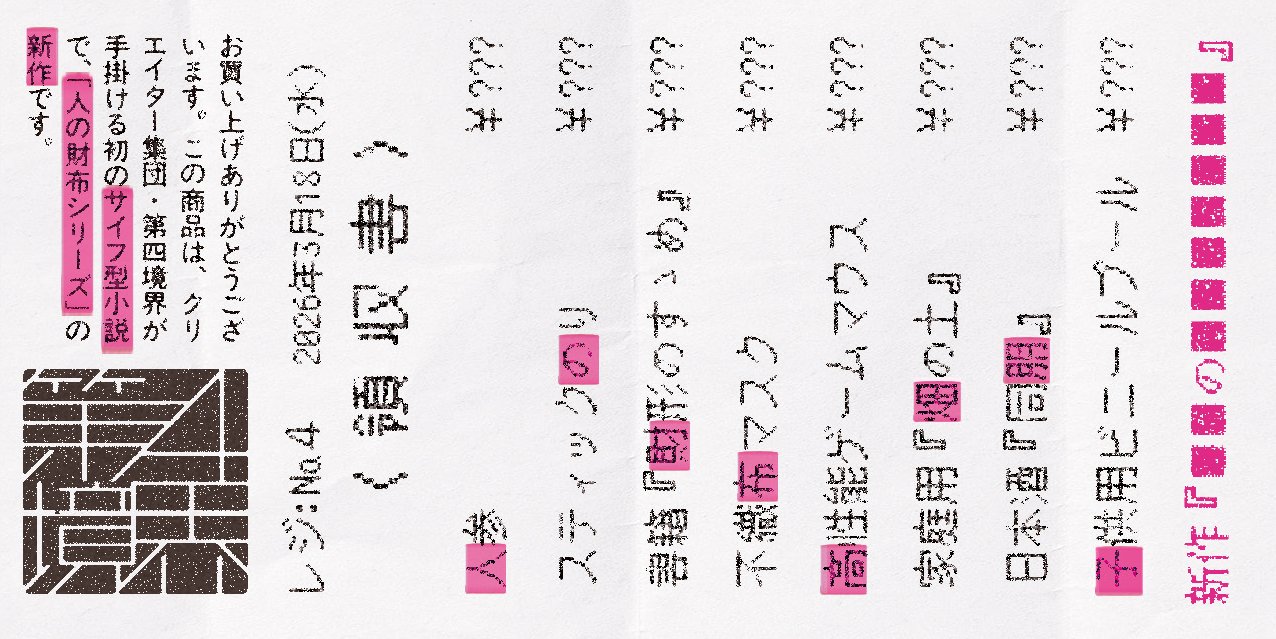 お買い上げありがとうござ
います。この商品は、クリ
エイター集団・第四境界が
手掛ける初のサイフ型小説
で、「人の財布シリーズ」の
新作です。
レジ:No.4 2026年3月18日(水)
〈領収書〉
人参 ¥???
スティックのり ¥???
書籍『財形のすゝめ』 ¥???
不織布マスク ¥???
高性能ゲームマウス ¥???
家庭用『畑の土』 ¥???
日本酒『同朋』 ¥???
子供用ビニールプール ¥???
新作『■■の■■■■■■■』